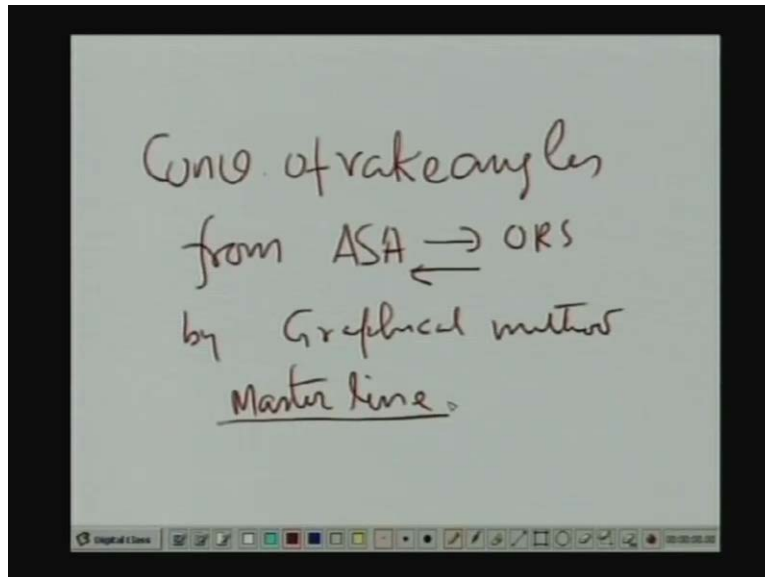 Conv. of rake angles
from ASA → ORS
←
by Graphical method
Master line.
Digital Class
00:00:00.00